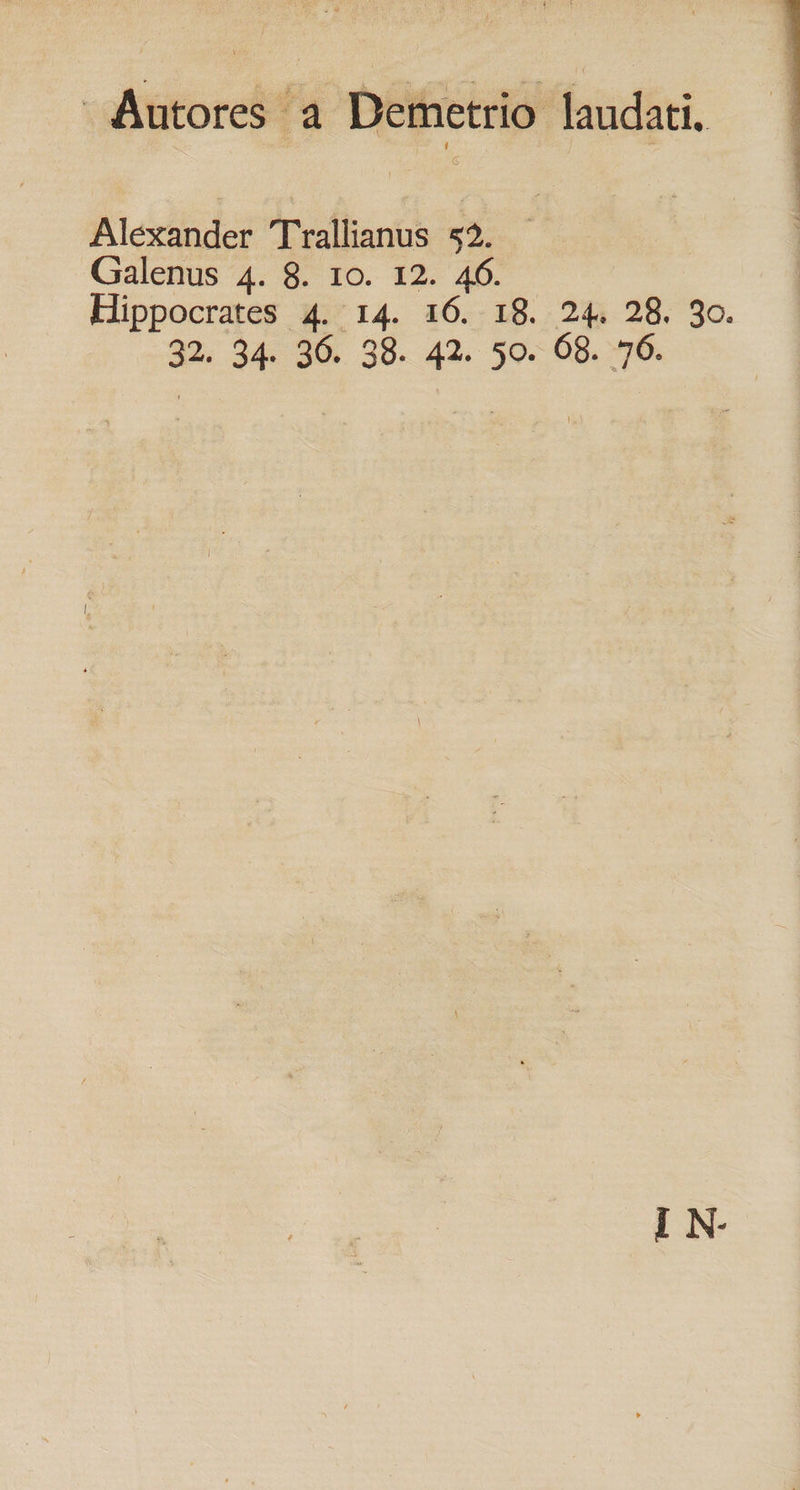 Autores a Demetrio laudati.
Alexander Trallianus 52.
Galenus 4. 8. 10. 12. 46.
Hippocrates 4. 14. 16. 18. 24. 28. 30.
32. 34. 36. 38. 42. 50. 68. 76.
IN-